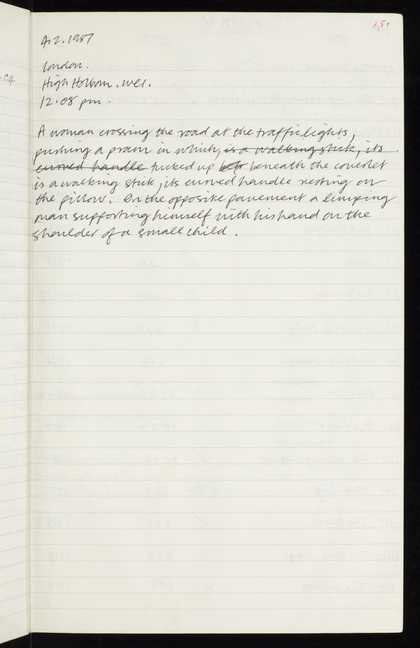 4.2.1987
London.
High Holborn. WC1.
12.08 pm.
A woman crossing the road at the traffic lights,
pushing a pram in which, is a walking stick, its
curved handle tucked up beneath the coverlet
is a walking stick, its curved handle resting on
the pillow. On the opposite pavement a limping
man supporting himself with his hand on the
shoulder of a small child.